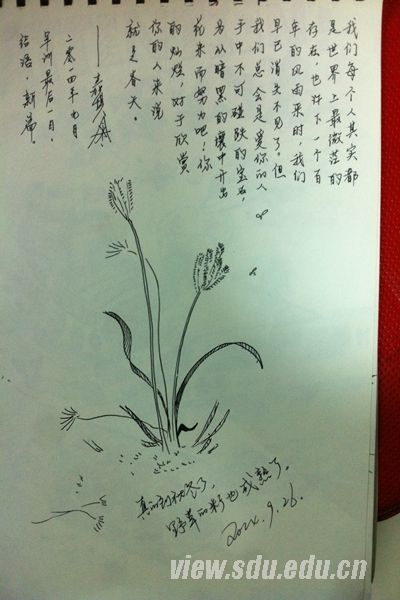 我们每个人其实都
是世界上最微茫的
存在,也许下一个百
年的风雨来时,我们
早已消失不见了。但
我们总会是爱你的人
手中不可碰跌的宝石,
为从暗黑的壤中开出
花来而努力吧!你
的灿烂,对于欣赏
你的人来说
就是春天。
二零一四年九月
军训最后一日,
结语 新篇
真的到了,
野草的籽也成熟了。
2014.9.26.
view.sdu.edu.cn